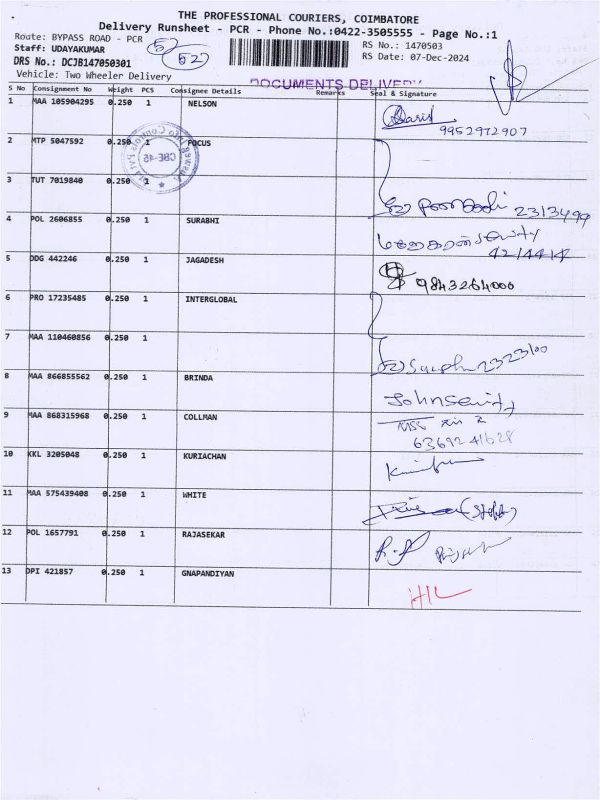 THE PROFESSIONAL COURIERS, COIMBATORE
Delivery Runsheet - PCR - Phone No.:0422-3505555 - Page No.:1
Route: BYPASS ROAD - PCR
Staff: UDAYAKUMAR
DRS No.: DCJB147050301
Vehicle: Two Wheeler Delivery
52
52
RS No.: 1470503
RS Date: 07-Dec-2024
DOCUMENTS DELIVERY
S No Consignment No Weight PCS Consignee Details Remarks Seal & Signature
1 MAA 105904295 0.250 1 NELSON
9952972907
2 MTP 5047592 0.250 1 FOCUS
CBE-45
3 TUT 7019840 0.250 1
2313499
4 POL 2606855 0.250 1 SURABHI
4214414
5 DDG 442246 0.250 1 JAGADESH
9843264000
6 PRO 17235485 0.250 1 INTERGLOBAL
7 MAA 110460856 0.250 1
2323100
8 MAA 866855562 0.250 1 BRINDA
9 MAA 868315968 0.250 1 COLLMAN
6369241628
10 KKL 3205048 0.250 1 KURIACHAN
11 MAA 575439408 0.250 1 WHITE
12 POL 1657791 0.250 1 RAJASEKAR
13 DPI 421857 0.250 1 GNAPANDIYAN